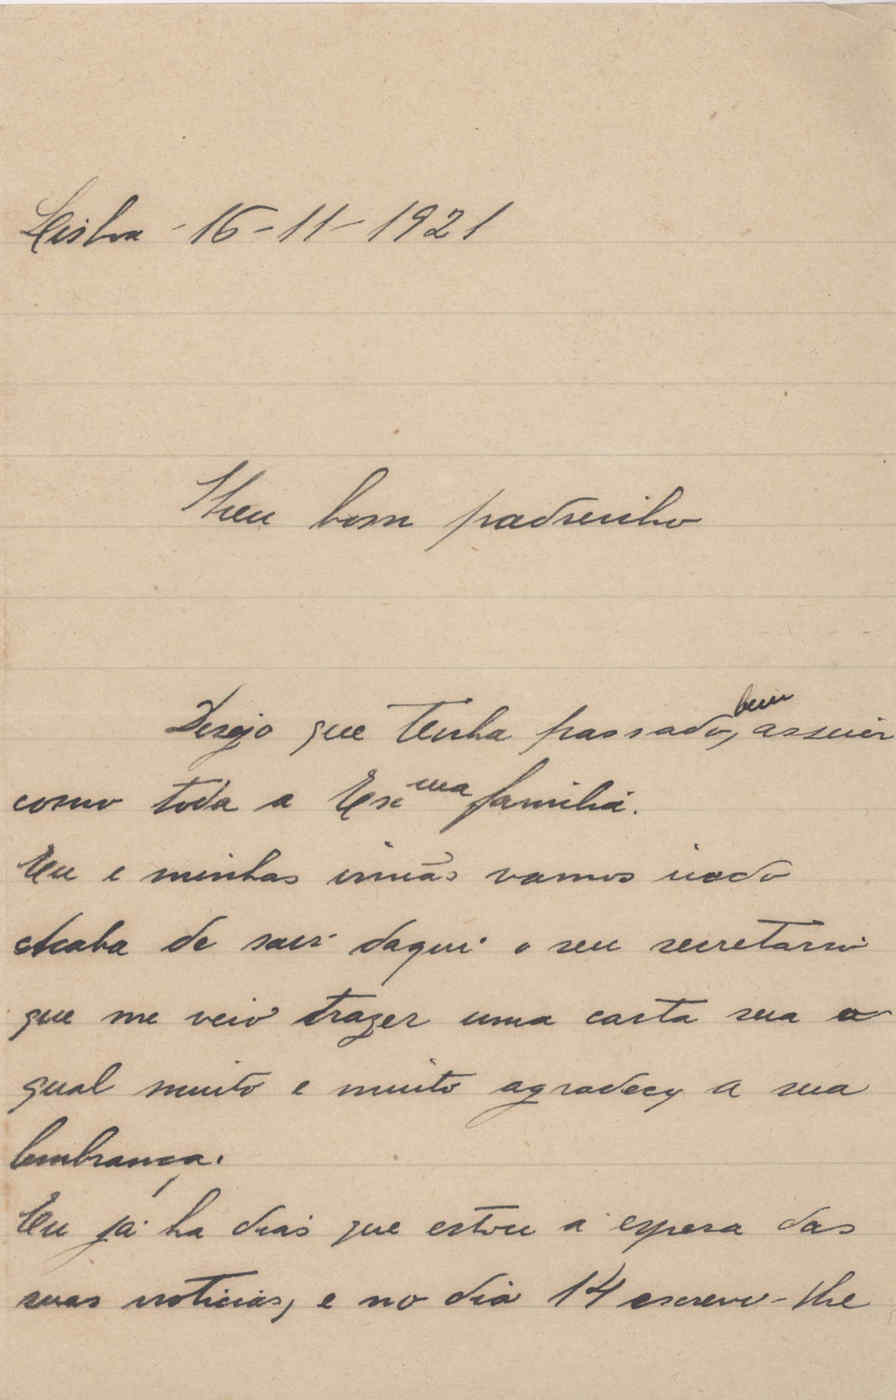 Lisboa - 16-11-1921
Meu bom padrinho
Desejo que tenha passado, bem assim
como toda a Exma familia.
Eu e minhas irmãs vamos indo
Acaba de sair daqui o seu secretario
que me veio trazer uma carta sua a
qual muito e muito agradeço a sua
lembrança.
Eu já ha dias que estou á espera das
suas noticias, e no dia 14 escrevi-lhe